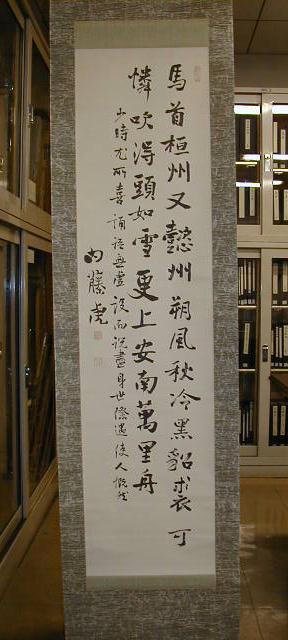 馬首桓州又懿州朔風秋冷黑貂裘可
憐吹得頭如雪更上安南萬里舟
少時尤所喜誦語無虛設而說盡身世際遇使人慨然
内藤虎